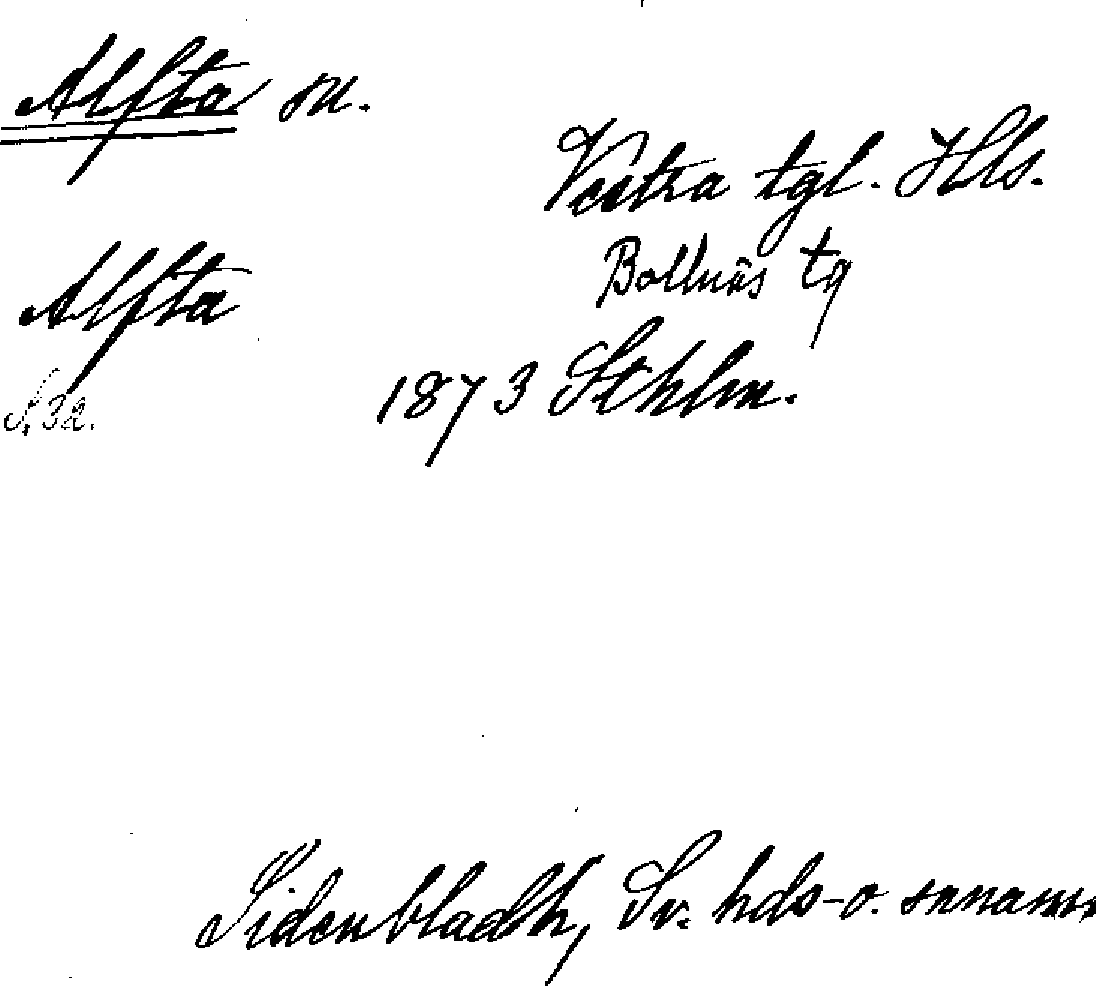 Alfta sn.
Vestra tgl. Hls.
Bollnäs tg
Alfta
1873 Sthlm.
S. 32.
Sidenbladh, Sv. hds- o. snnamn